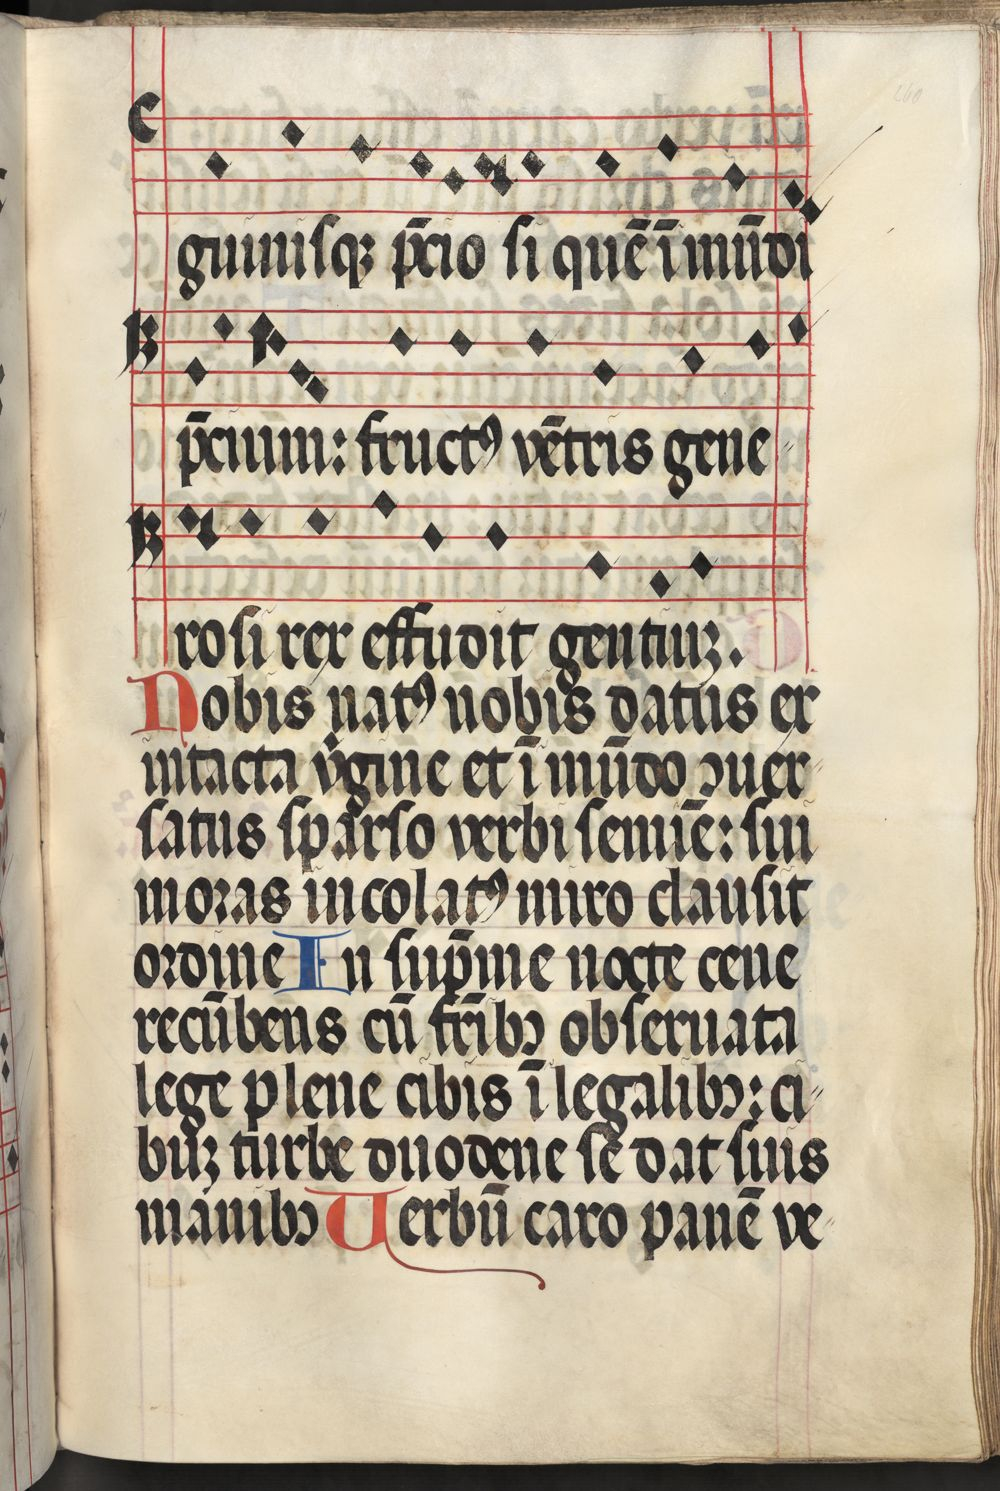 260
guinisqꝫ p̄cio si quē ī mūdi
p̄cium: fructꝰ vētris gene
rosi rex effudit gentiuꝫ.
Nobis natꝰ nobis datus ex
intacta v̇gine et ī mūdo ꝯuer
satus sparso verbi semīe: sui
moras incolatꝰ miro clausit
ordine In sup̄me nocte cene
recūbens cū fr̄ibꝯ obseruata
lege plene cibis ī legalibꝯ: ci
buꝫ turbe duodene se dat suis
manibꝯ Uerbū caro panē ve